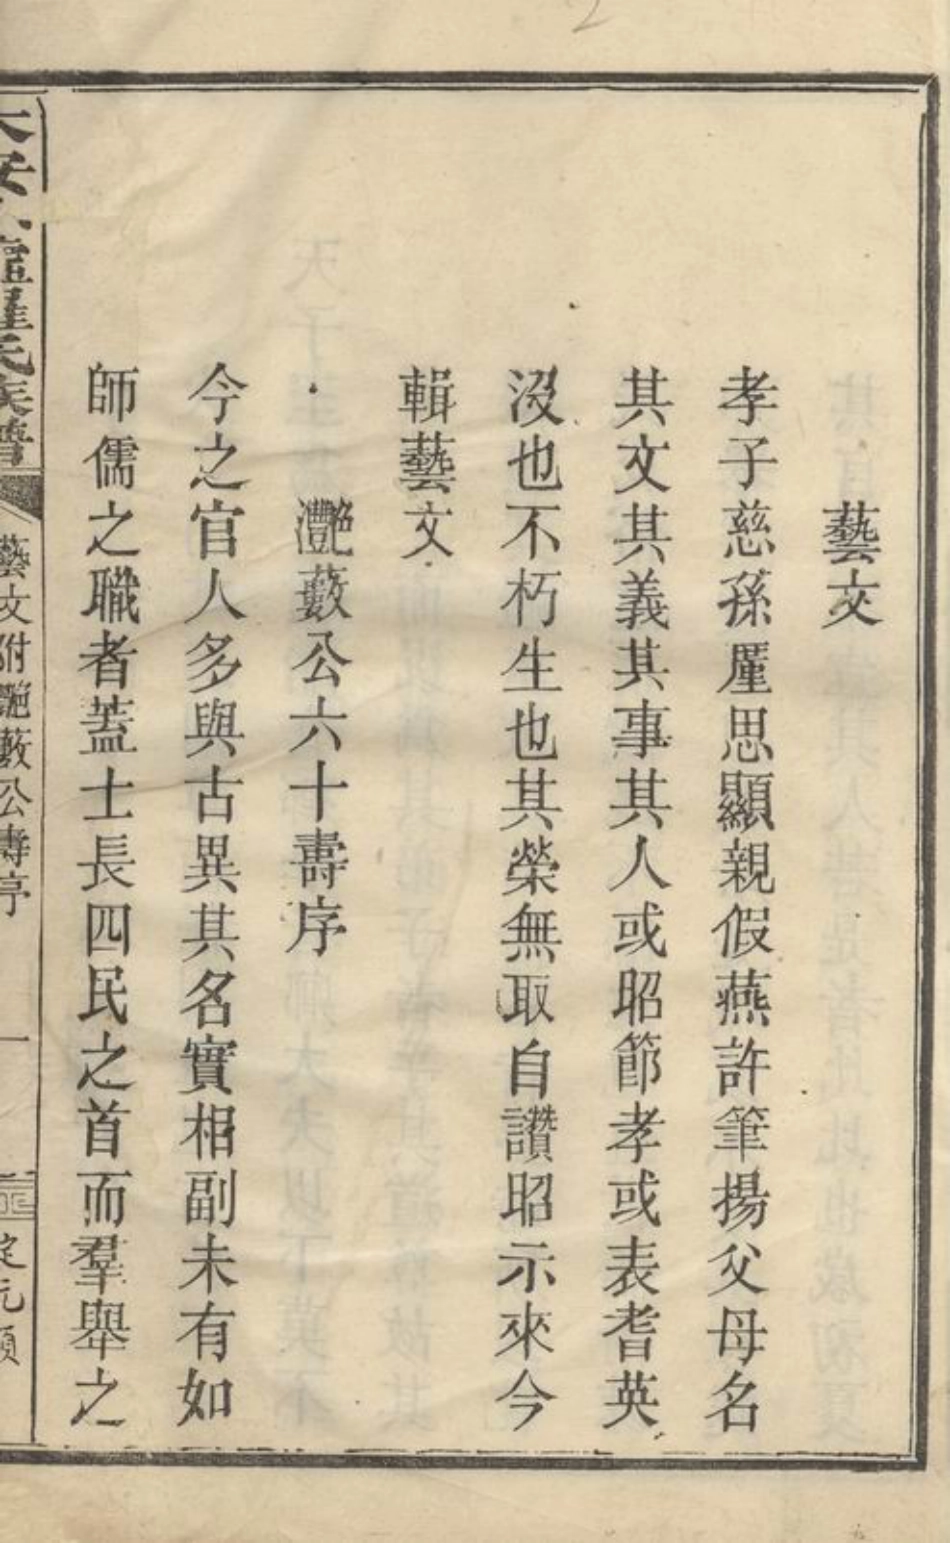 藝文
孝子慈孫厪思顯親假燕許筆揚父母名
其文其義其事其人或昭節孝或表耆英
沒也不朽生也其榮無取自讚昭示來今
輯藝文
灔藪公六十壽序
今之官人多與古異其名實相副未有如
師儒之職者蓋士長四民之首而羣舉之
羅氏族譜
藝文附灔藪公壽序
一